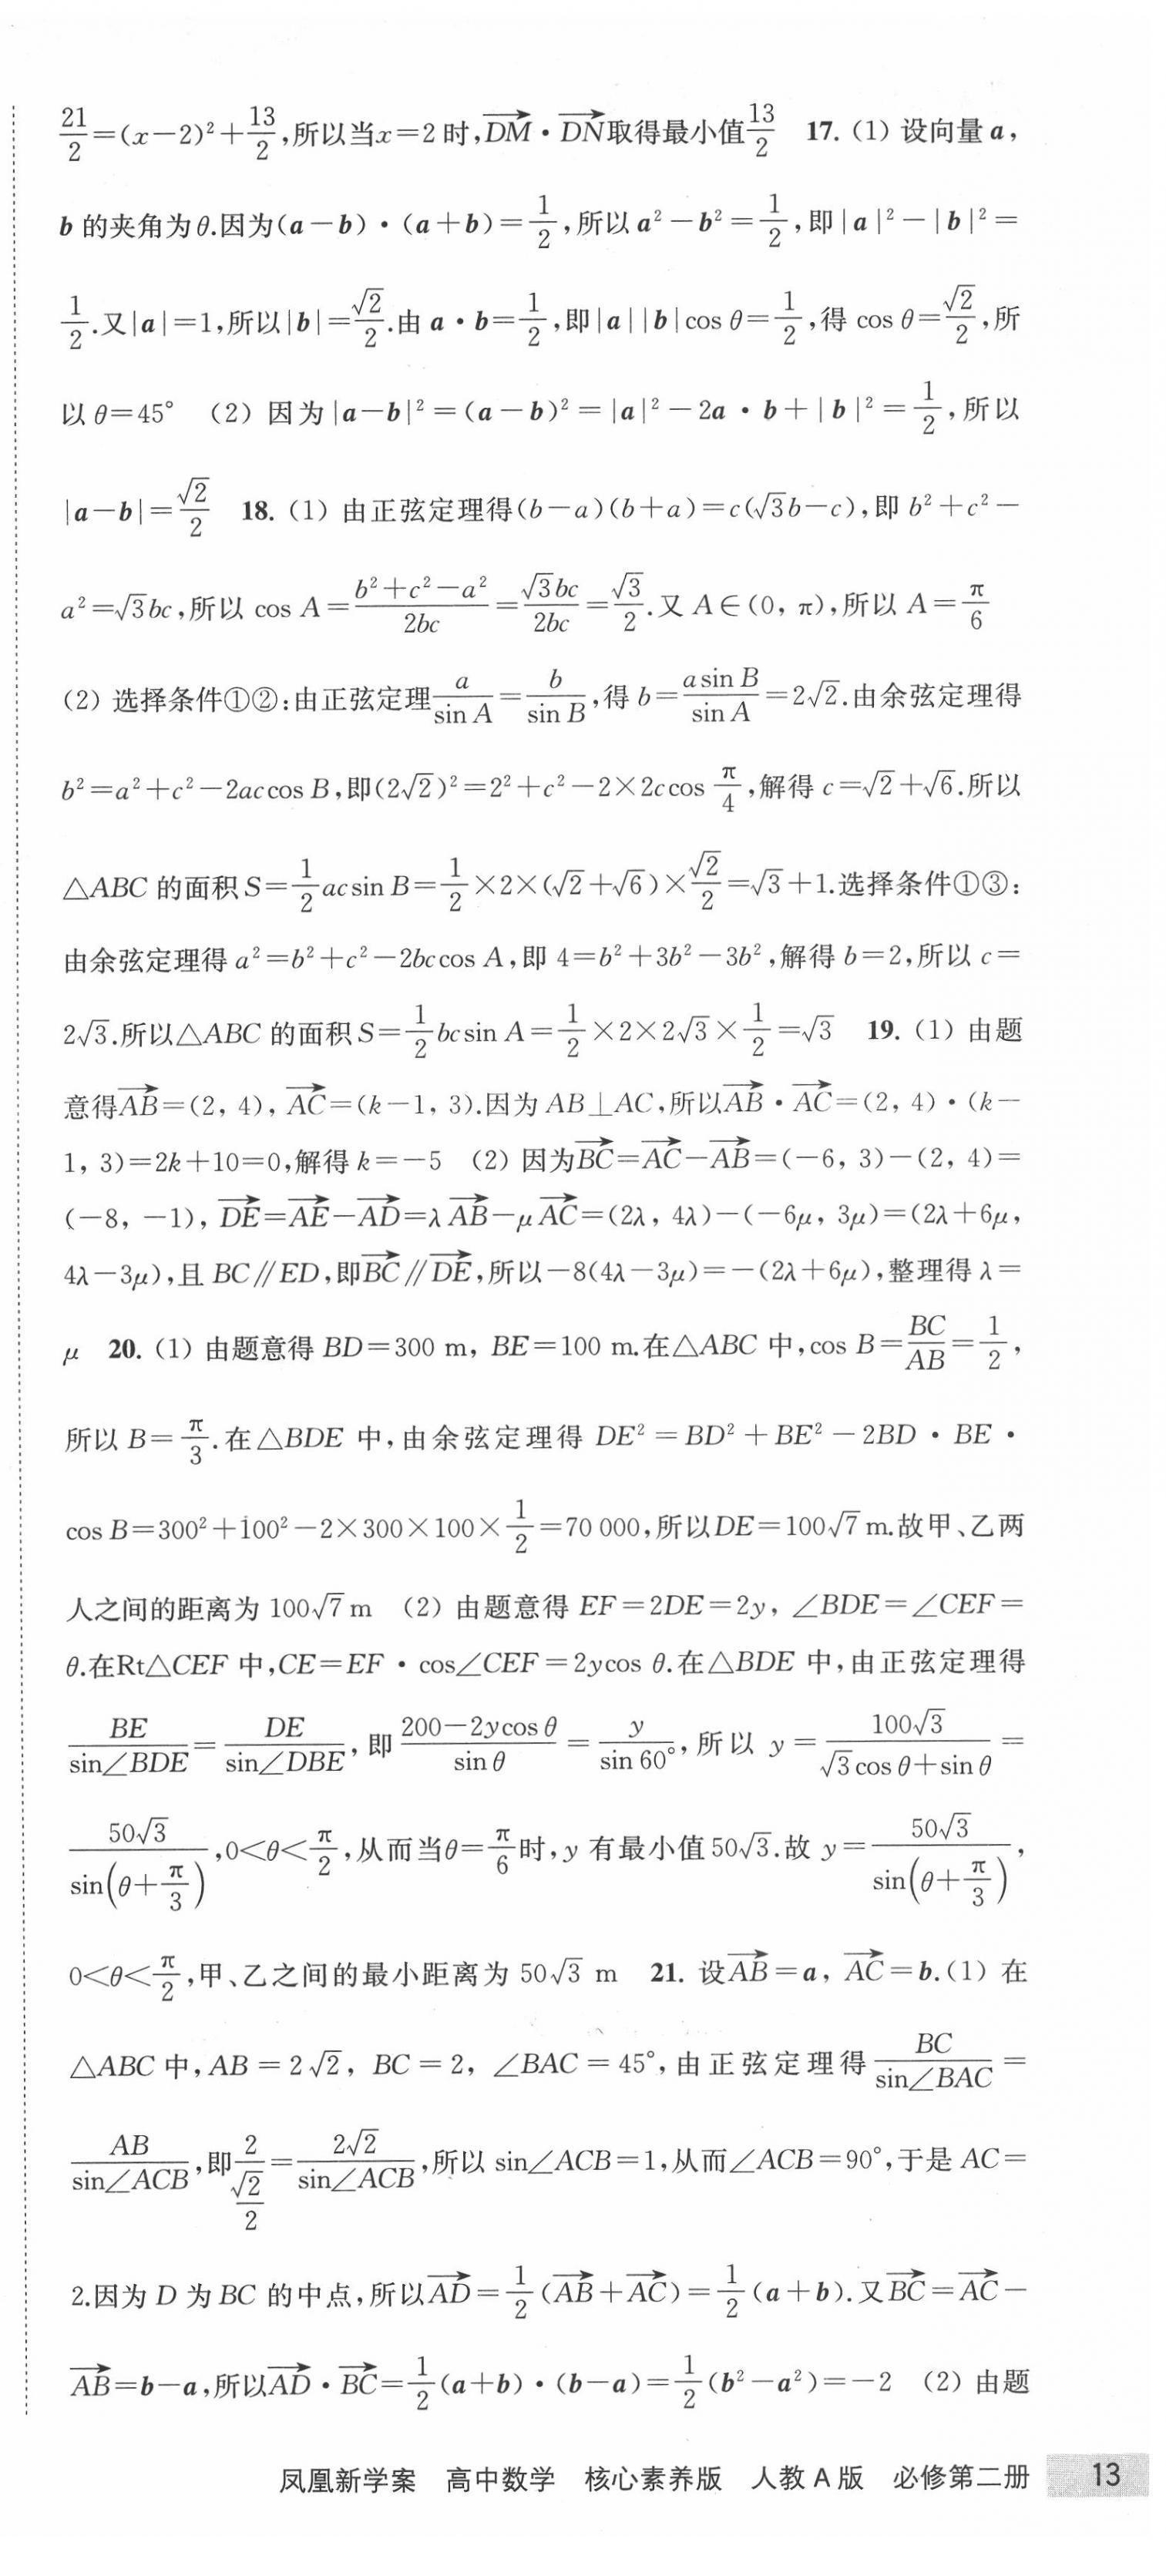 21/2=(x-2)²+13/2,所以当x=2时,DM→·DN→取得最小值13/2 17. (1) 设向量a,
b的夹角为θ.因为(a-b)·(a+b)=1/2,所以a²-b²=1/2,即|a|²-|b|²=
1/2.又|a|=1,所以|b|=√2/2.由a·b=1/2,即|a||b|cos θ=1/2,得cos θ=√2/2,所
以θ=45° (2) 因为|a-b|²=(a-b)²=|a|²-2a·b+|b|²=1/2,所以
|a-b|=√2/2 18. (1) 由正弦定理得(b-a)(b+a)=c(√3b-c),即b²+c²-
a²=√3bc,所以cos A=(b²+c²-a²)/2bc=√3bc/2bc=√3/2.又A∈(0, π),所以A=π/6
(2) 选择条件①②:由正弦定理a/sin A=b/sin B,得b=asin B/sin A=2√2.由余弦定理得
b²=a²+c²-2accos B,即(2√2)²=2²+c²-2×2ccos π/4,解得c=√2+√6.所以
△ABC的面积S=1/2acsin B=1/2×2×(√2+√6)×√2/2=√3+1.选择条件①③:
由余弦定理得a²=b²+c²-2bccos A,即4=b²+3b²-3b²,解得b=2,所以c=
2√3.所以△ABC的面积S=1/2bcsin A=1/2×2×2√3×1/2=√3 19. (1) 由题
意得AB→=(2, 4), AC→=(k-1, 3).因为AB⊥AC,所以AB→·AC→=(2, 4)·(k-
1, 3)=2k+10=0,解得k=-5 (2) 因为BC→=AC→-AB→=(-6, 3)-(2, 4)=
(-8, -1), DE→=AE→-AD→=λAB→-μAC→=(2λ, 4λ)-(-6μ, 3μ)=(2λ+6μ,
4λ-3μ),且BC∥ED,即BC→∥DE→,所以-8(4λ-3μ)=-(2λ+6μ),整理得λ=
μ 20. (1) 由题意得BD=300 m, BE=100 m.在△ABC中,cos B=BC/AB=1/2,
所以B=π/3.在△BDE中,由余弦定理得DE²=BD²+BE²-2BD·BE·
cos B=300²+100²-2×300×100×1/2=70 000,所以DE=100√7 m.故甲、乙两
人之间的距离为100√7 m (2) 由题意得EF=2DE=2y, ∠BDE=∠CEF=
θ.在Rt△CEF中,CE=EF·cos∠CEF=2ycos θ.在△BDE中,由正弦定理得
BE/sin∠BDE=DE/sin∠DBE,即(200-2ycos θ)/sin θ=y/sin 60°,所以y=100√3/(√3cos θ+sin θ)=
50√3/sin(θ+π/3),0<θ<π/2,从而当θ=π/6时,y有最小值50√3.故y=50√3/sin(θ+π/3),
0<θ<π/2,甲、乙之间的最小距离为50√3 m 21. 设AB→=a, AC→=b.(1) 在
△ABC中,AB=2√2, BC=2, ∠BAC=45°,由正弦定理得BC/sin∠BAC=
AB/sin∠ACB,即2/(√2/2)=2√2/sin∠ACB,所以sin∠ACB=1,从而∠ACB=90°,于是AC=
2.因为D为BC的中点,所以AD→=1/2(AB→+AC→)=1/2(a+b).又BC→=AC→-
AB→=b-a,所以AD→·BC→=1/2(a+b)·(b-a)=1/2(b²-a²)=-2 (2) 由题
凤凰新学案 高中数学 核心素养版 人教A版 必修第二册 13